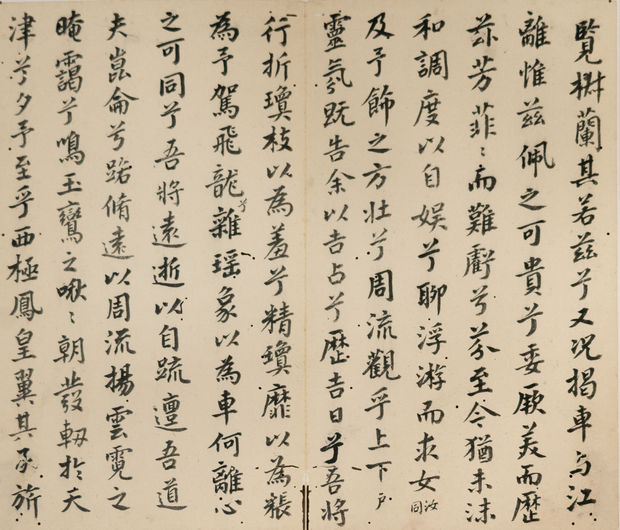 覽椒蘭其若茲兮又況揭車與江
離惟茲佩之可貴兮委厥美而歷
茲芳菲〻而難虧兮芬至今猶未沬
和調度以自娛兮聊浮游而求女汝同
及予飾之方壯兮周流觀乎上下戶
靈氛既告余以吉占兮歷吉日兮吾將
行折瓊枝以為羞兮精瓊爢以為粻
為予駕飛龍兮雜瑤象以為車何離心
之可同兮吾將遠逝以自疏邅吾道
夫崑侖兮路脩遠以周流揚雲霓之
晻靄兮鳴玉鸞之啾〻朝發軔於天
津兮夕予至乎西極鳳皇翼其承旂